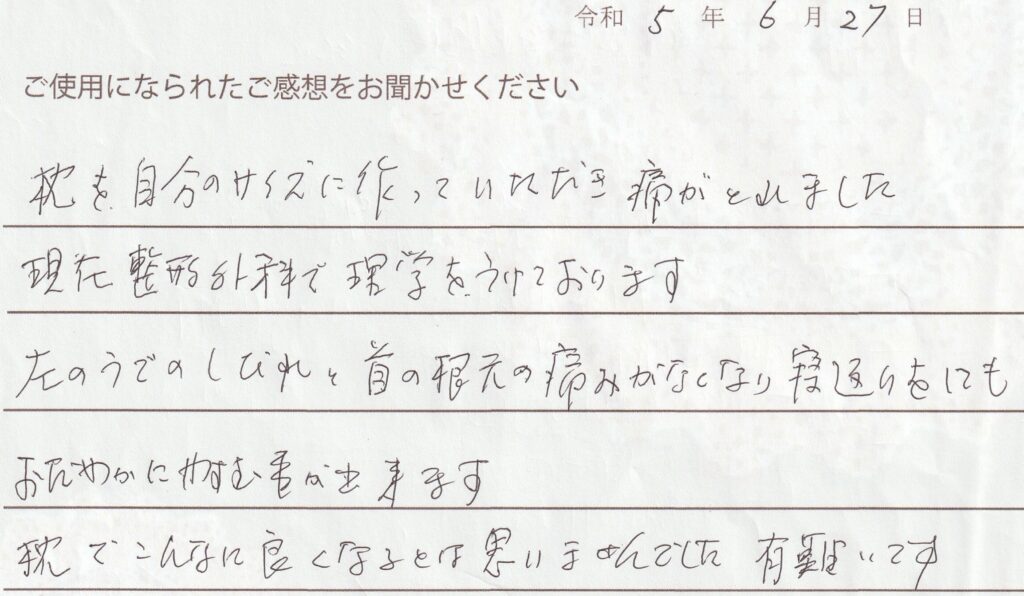 令和 5 年 6 月 27 日
ご使用になられたご感想をお聞かせください
枕を自分のサイズに作っていただき 痛がとれました
現在 整形外科で 理学をうけております
左のうでのしびれと首の根元の痛みがなくなり寝返りをしても
おだやかにやすむ事が出来ます
枕でこんなに良くなるとは思いませんでした 有難いです